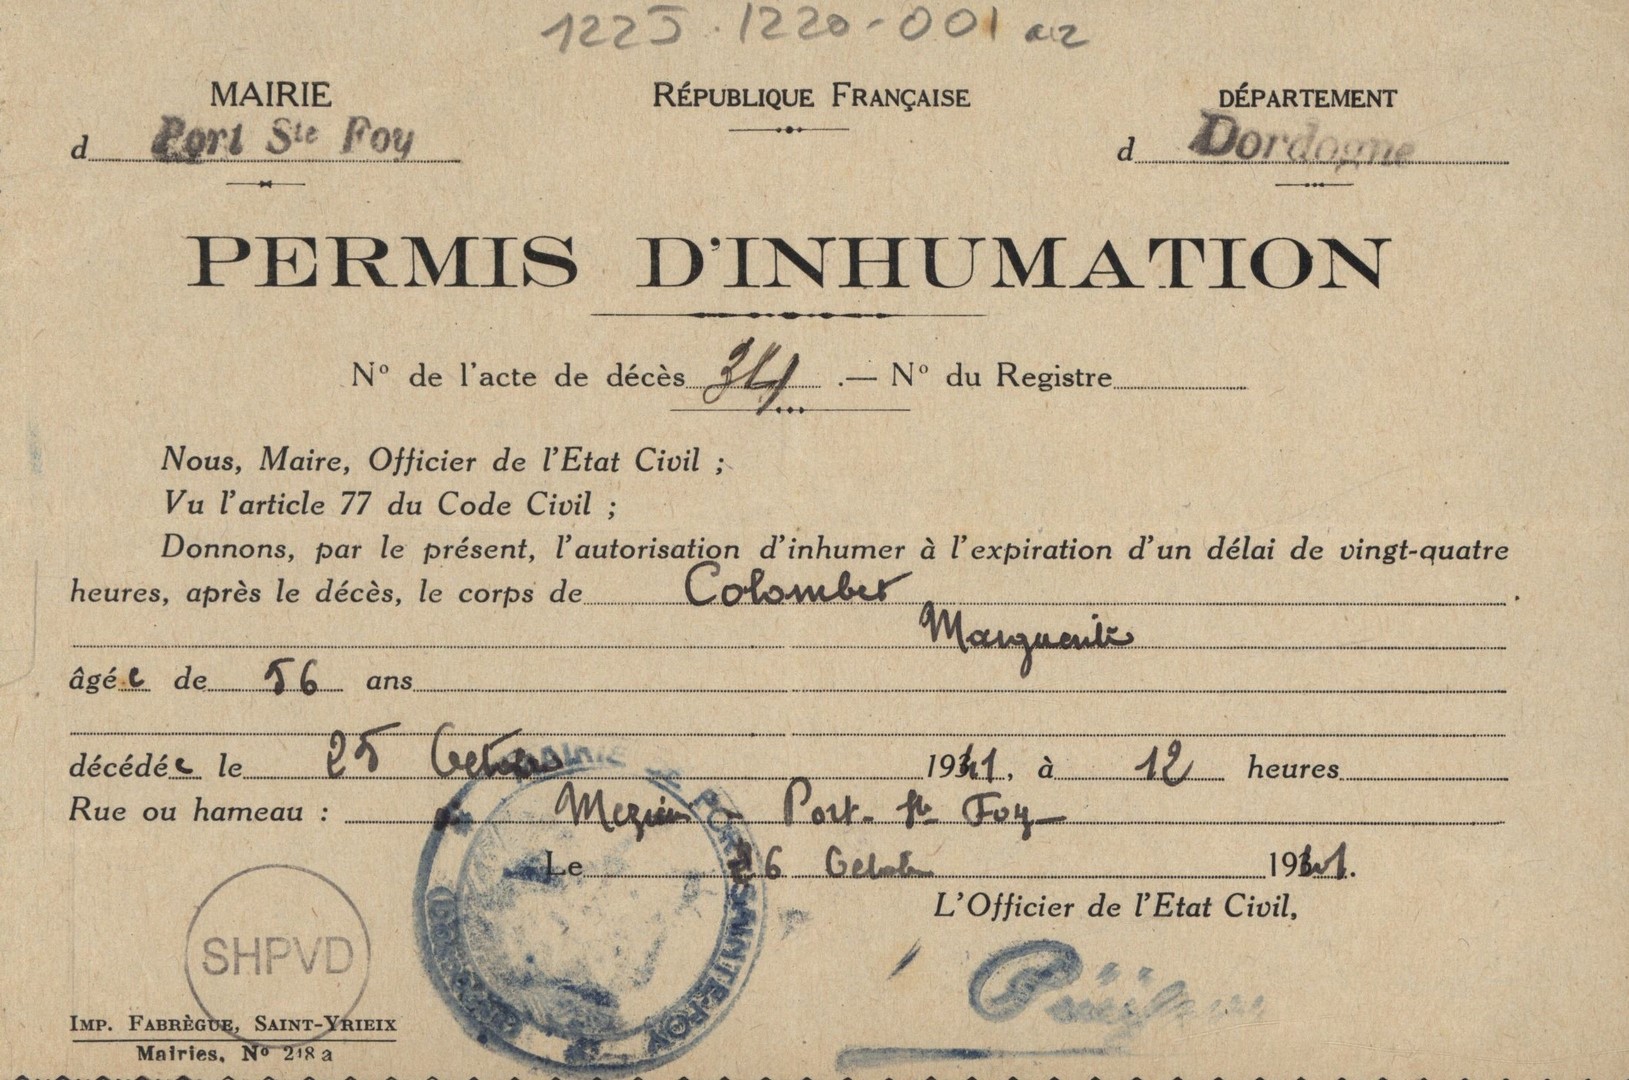 122J.1220-001 a2
MAIRIE
d Port Ste Foy
RÉPUBLIQUE FRANÇAISE
DÉPARTEMENT
d Dordogne
PERMIS D'INHUMATION
N° de l'acte de décès 34 .— N° du Registre
Nous, Maire, Officier de l'Etat Civil ;
Vu l'article 77 du Code Civil ;
Donnons, par le présent, l'autorisation d'inhumer à l'expiration d'un délai de vingt-quatre
heures, après le décès, le corps de Colombet
Marguerite
âgée de 56 ans
décédée le 25 Octobre 1941, à 12 heures
Rue ou hameau : Port-Ste Foy
Le 26 Octobre 1941.
L'Officier de l'Etat Civil,
MAIRIE DE PORT-SAINTE-FOY
SHPVD
IMP. FABRÈGUE, SAINT-YRIEIX
Mairies, N° 218 a